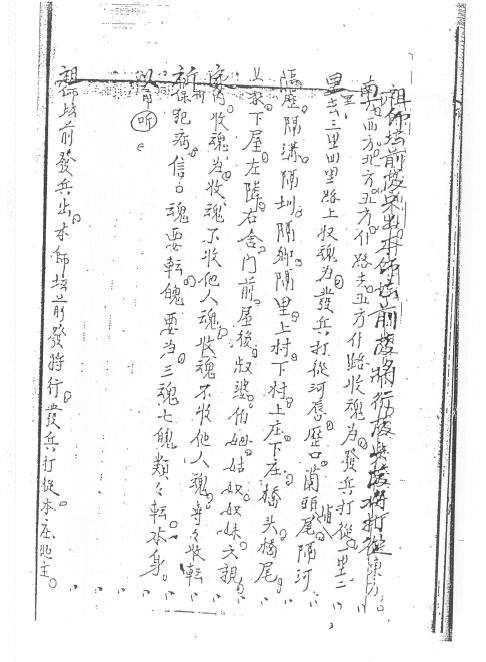 祖師坛前發兵出本師坛前發將行發兵發將打從東方
南方西方北方五方什路去五方什路收魂为發兵打從一里二
里去三里四里路上收魂为發兵打從河唇壢口 崗頭崗尾隔河
隔壢隔溝隔圳隔鄉隔里上村下村上庄下庄橋头橋尾
上家下屋左隣右舍门前屋後叔婆伯姆姑奴姊妹六親
內收魂为收魂不收他人魂收魂不收他人魂專々收轉
祈保犯病信 魂要轉魄要为三魂七魄類々轉本身
听
祖師坛前發兵出本師坛前發將行發兵打從本庄地主